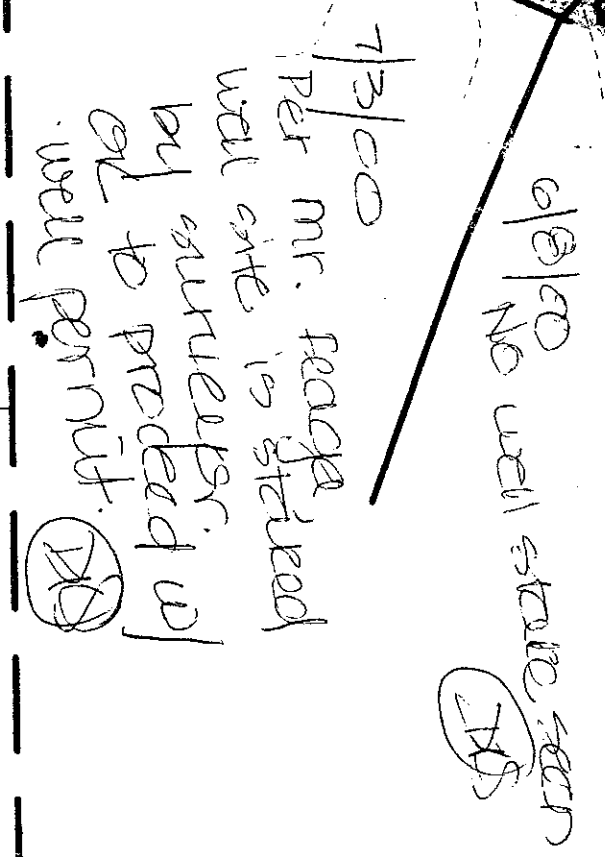 6/8/00
No well stake seen
DS
7/3/00
Per Mr.
well site is staked
by surveyor.
OK to proceed w/
well permit.
DS